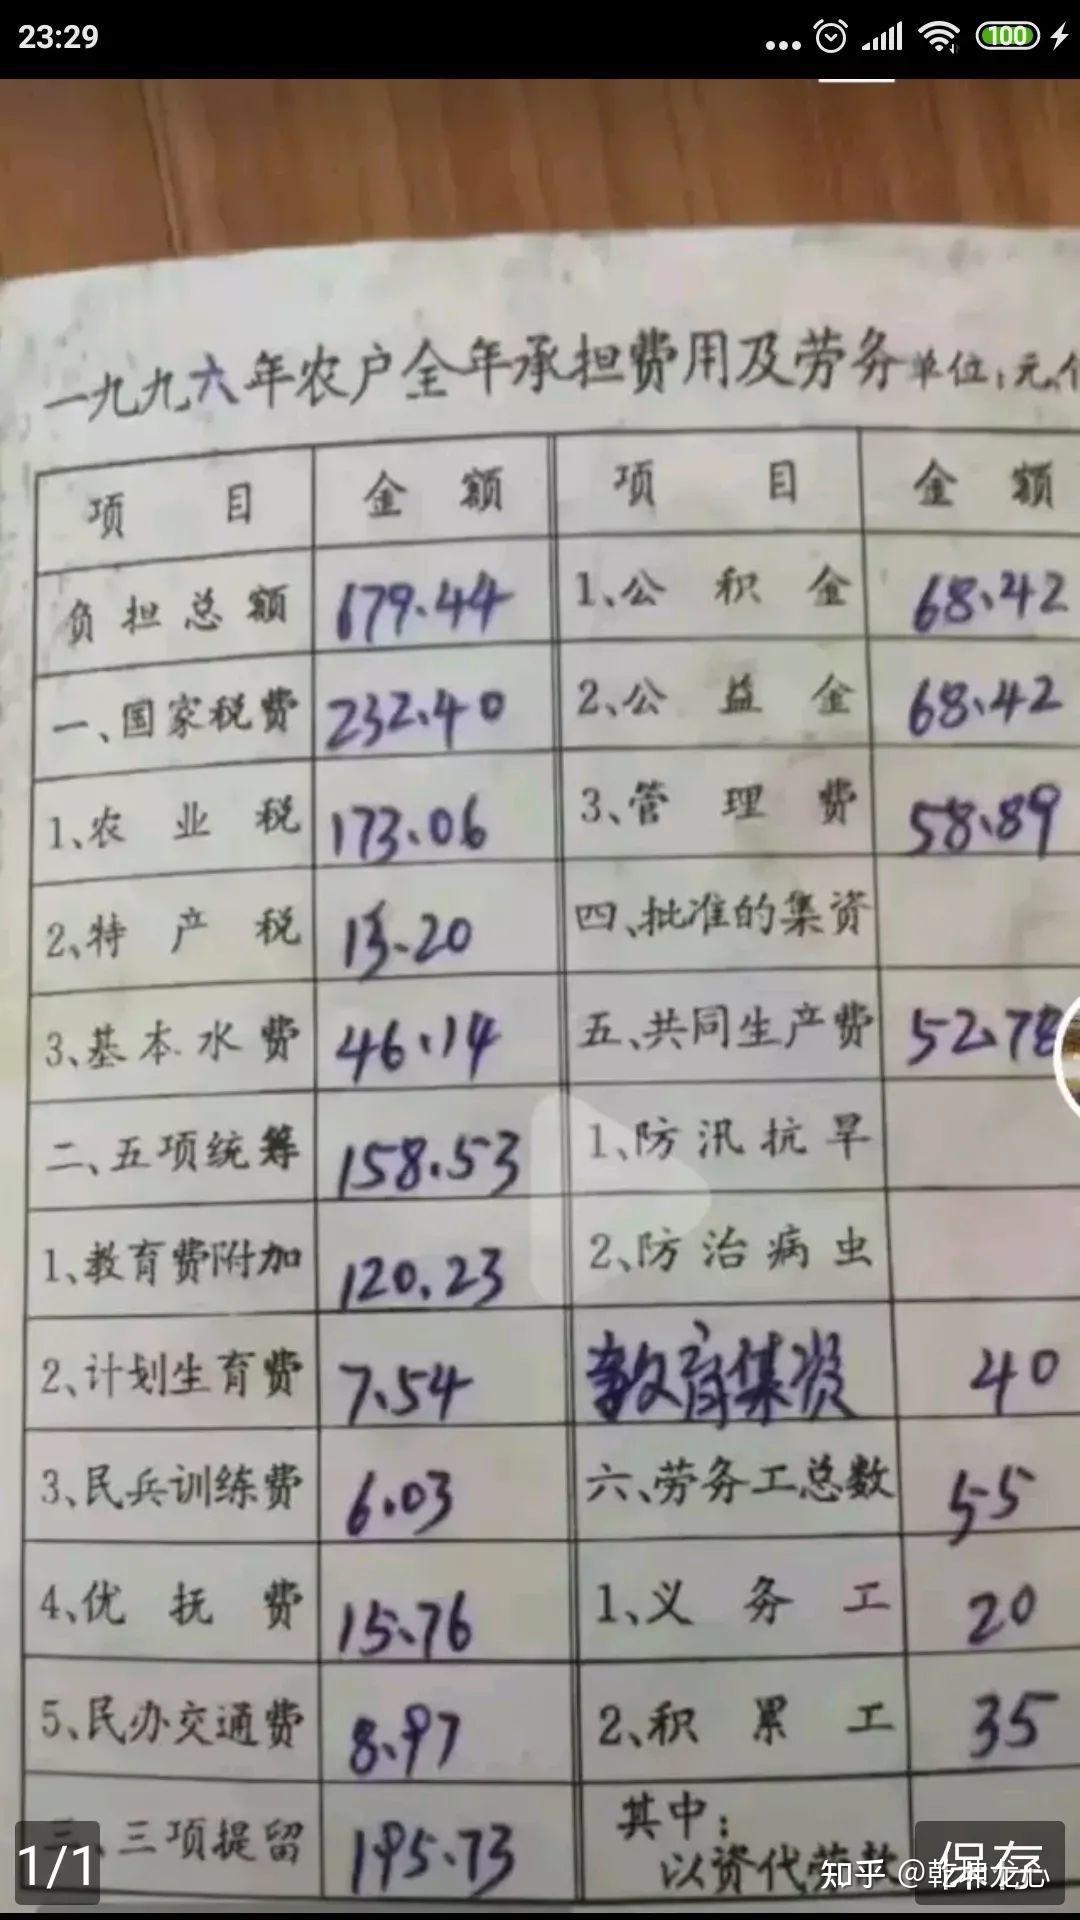 23:29
100
一九九六年农户全年承担费用及劳务 单位:元、
项目 金额 项目 金额
负担总额 679.44 1、公积金 68.42
一、国家税费 232.40 2、公益金 68.42
1、农业税 173.06 3、管理费 58.89
2、特产税 13.20 四、批准的集资
3、基本水费 46.14 五、共同生产费 52.78
二、五项统筹 158.53 1、防汛抗旱
1、教育费附加 120.23 2、防治病虫
2、计划生育费 7.54 教育集资 40
3、民兵训练费 6.03 六、劳务工总数 55
4、优抚费 15.76 1、义务工 20
5、民办交通费 8.97 2、积累工 35
三、三项提留 195.73 其中:
以资代劳款
1/1
知乎 @乾坤龙心
保存